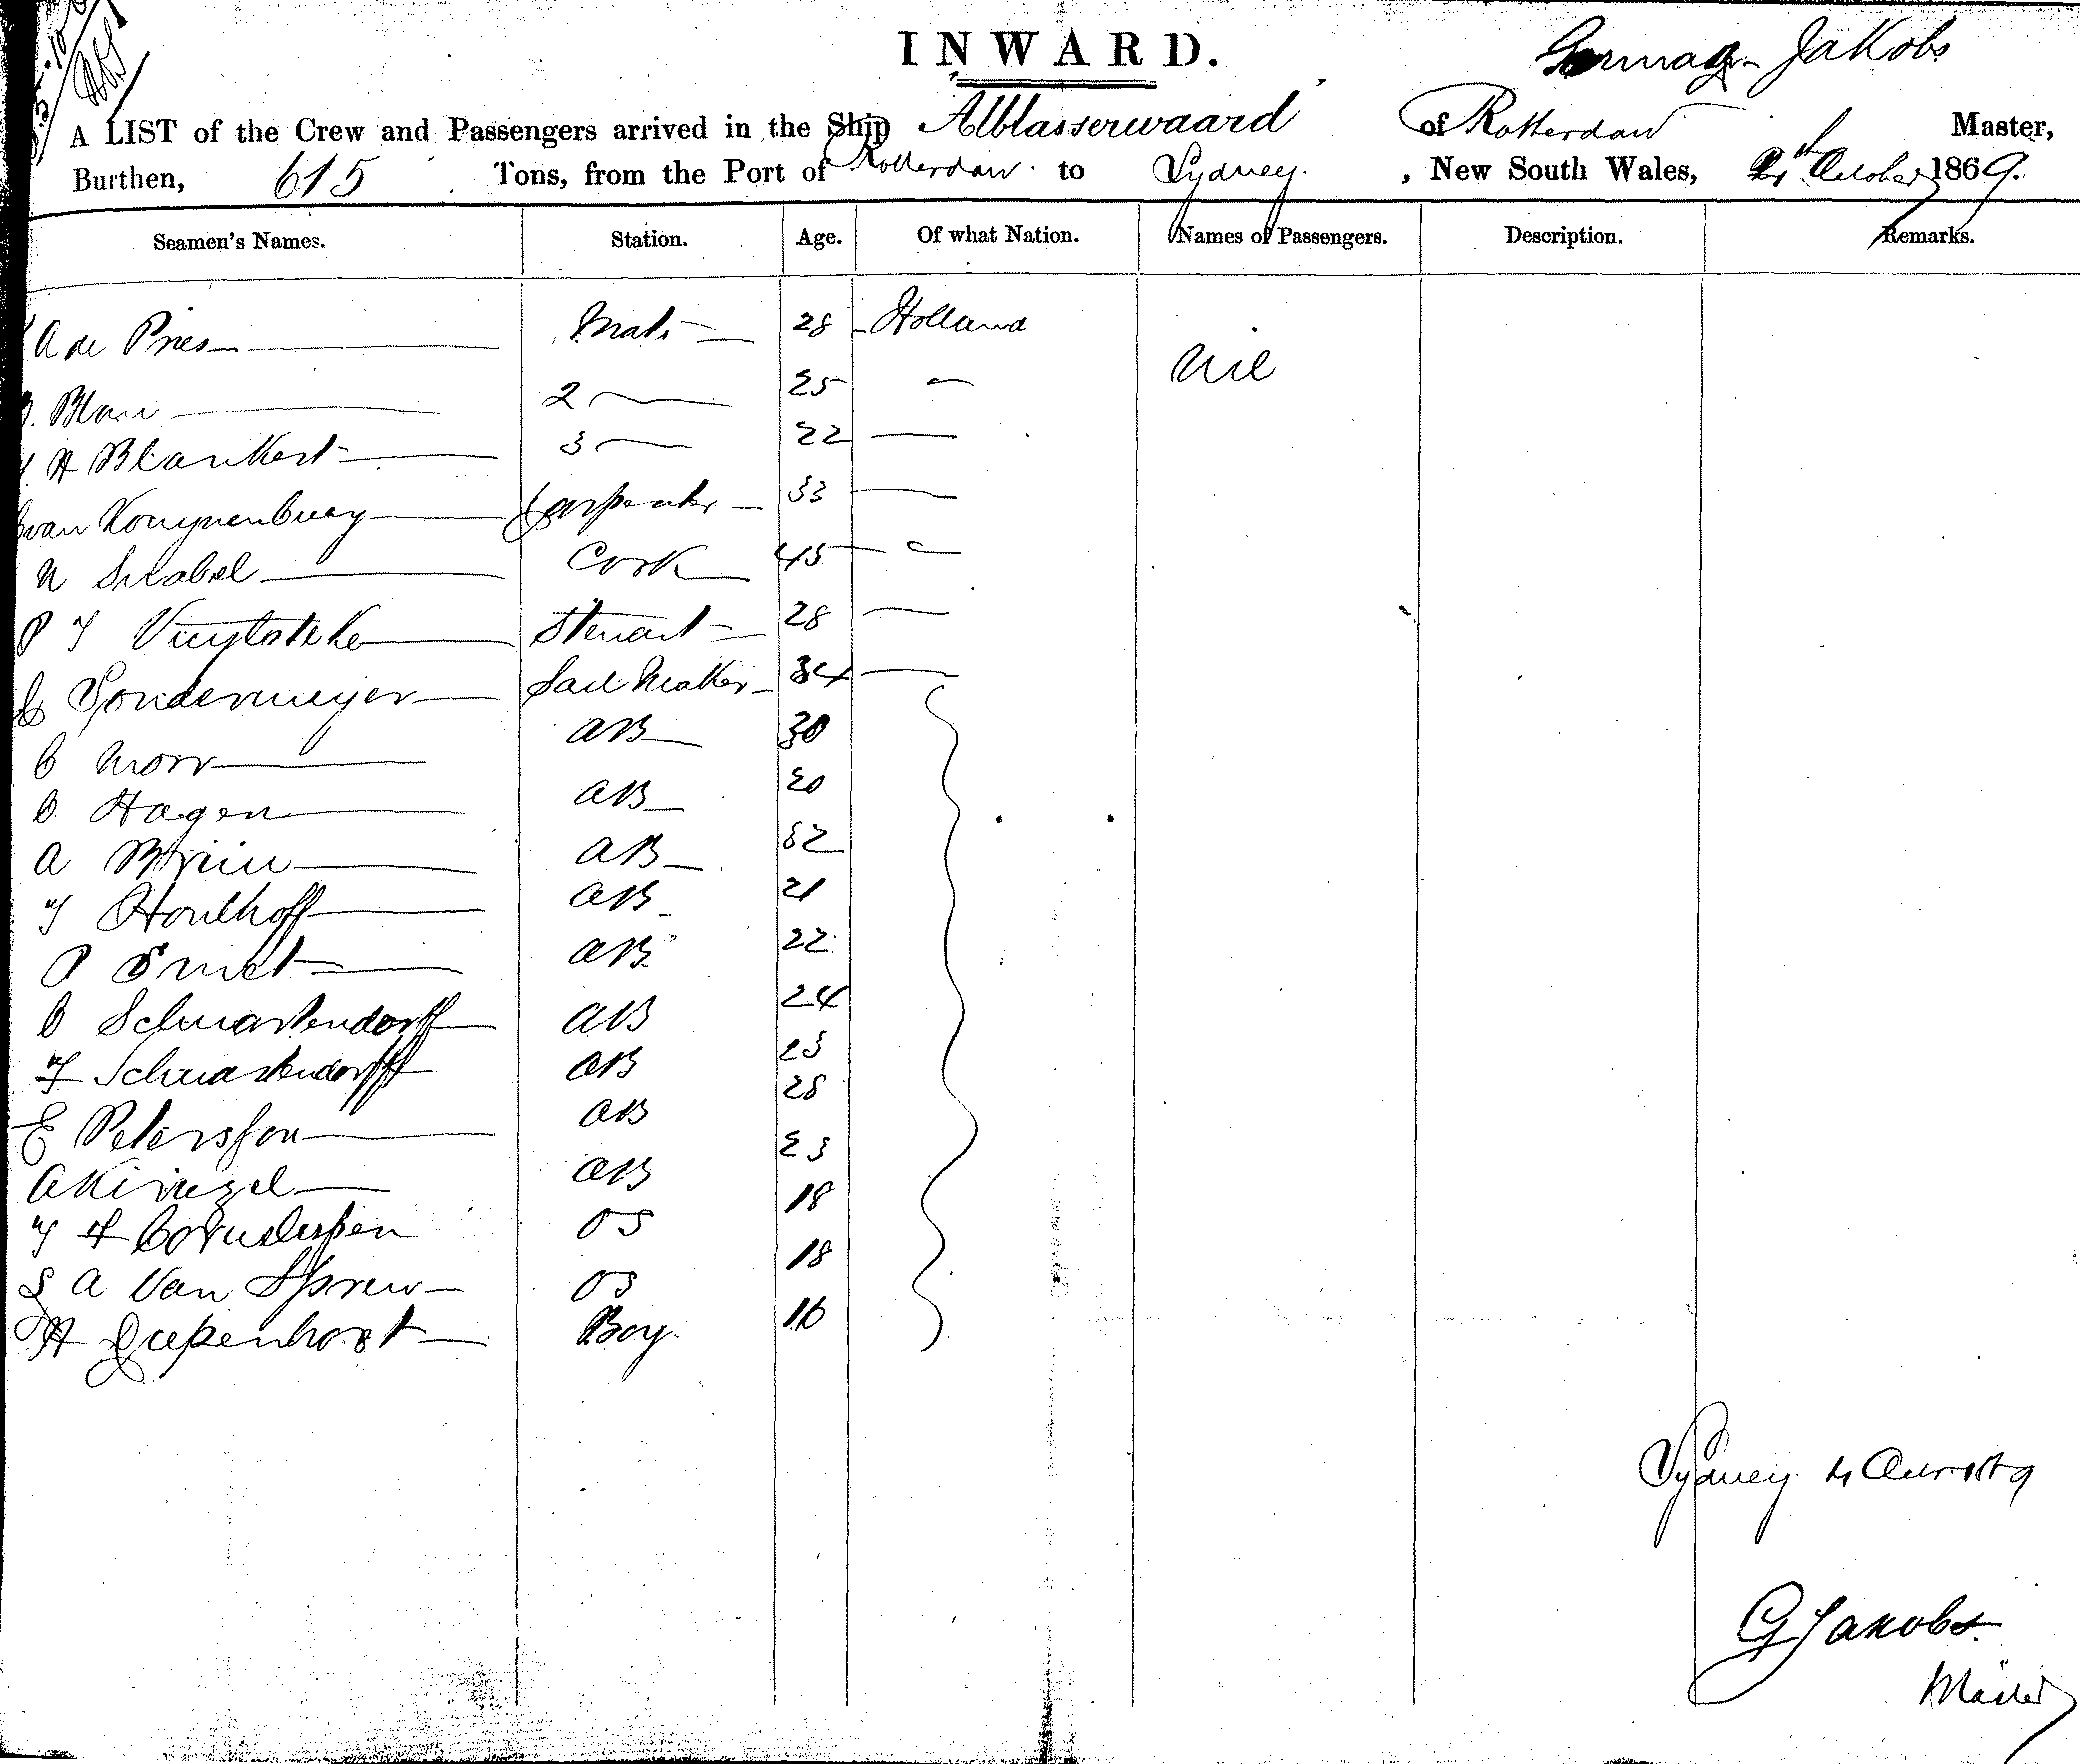 INWARD.
Jakobs
A LIST of the Crew and Passengers arrived in the Ship Alblasserwaard of Rotterdam Master,
Burthen, 615 Tons, from the Port of Rotterdam to Sydney , New South Wales, October 1869.
Seamen's Names. Station. Age. Of what Nation. Names of Passengers. Description. Remarks.
A de Pries Mate 28 Holland
Nil
Blau 2 25
H Blankert 3 22
van Carpenter 33
N Cook 45
P J Vuylsteke Steuart 28
Sondermeijer Sail Maker 34
AB 30
Hagen AB 20
A AB 32
J Houlhoff AB 21
P Smet AB 22
Schwartendorff AB 24
Schwartendorff AB 23
E Petersson AB 28
AB 23
J H OS 18
S A Van OS 18
H Diepenhorst Boy 16
Sydney 4
G Jakobs
Master